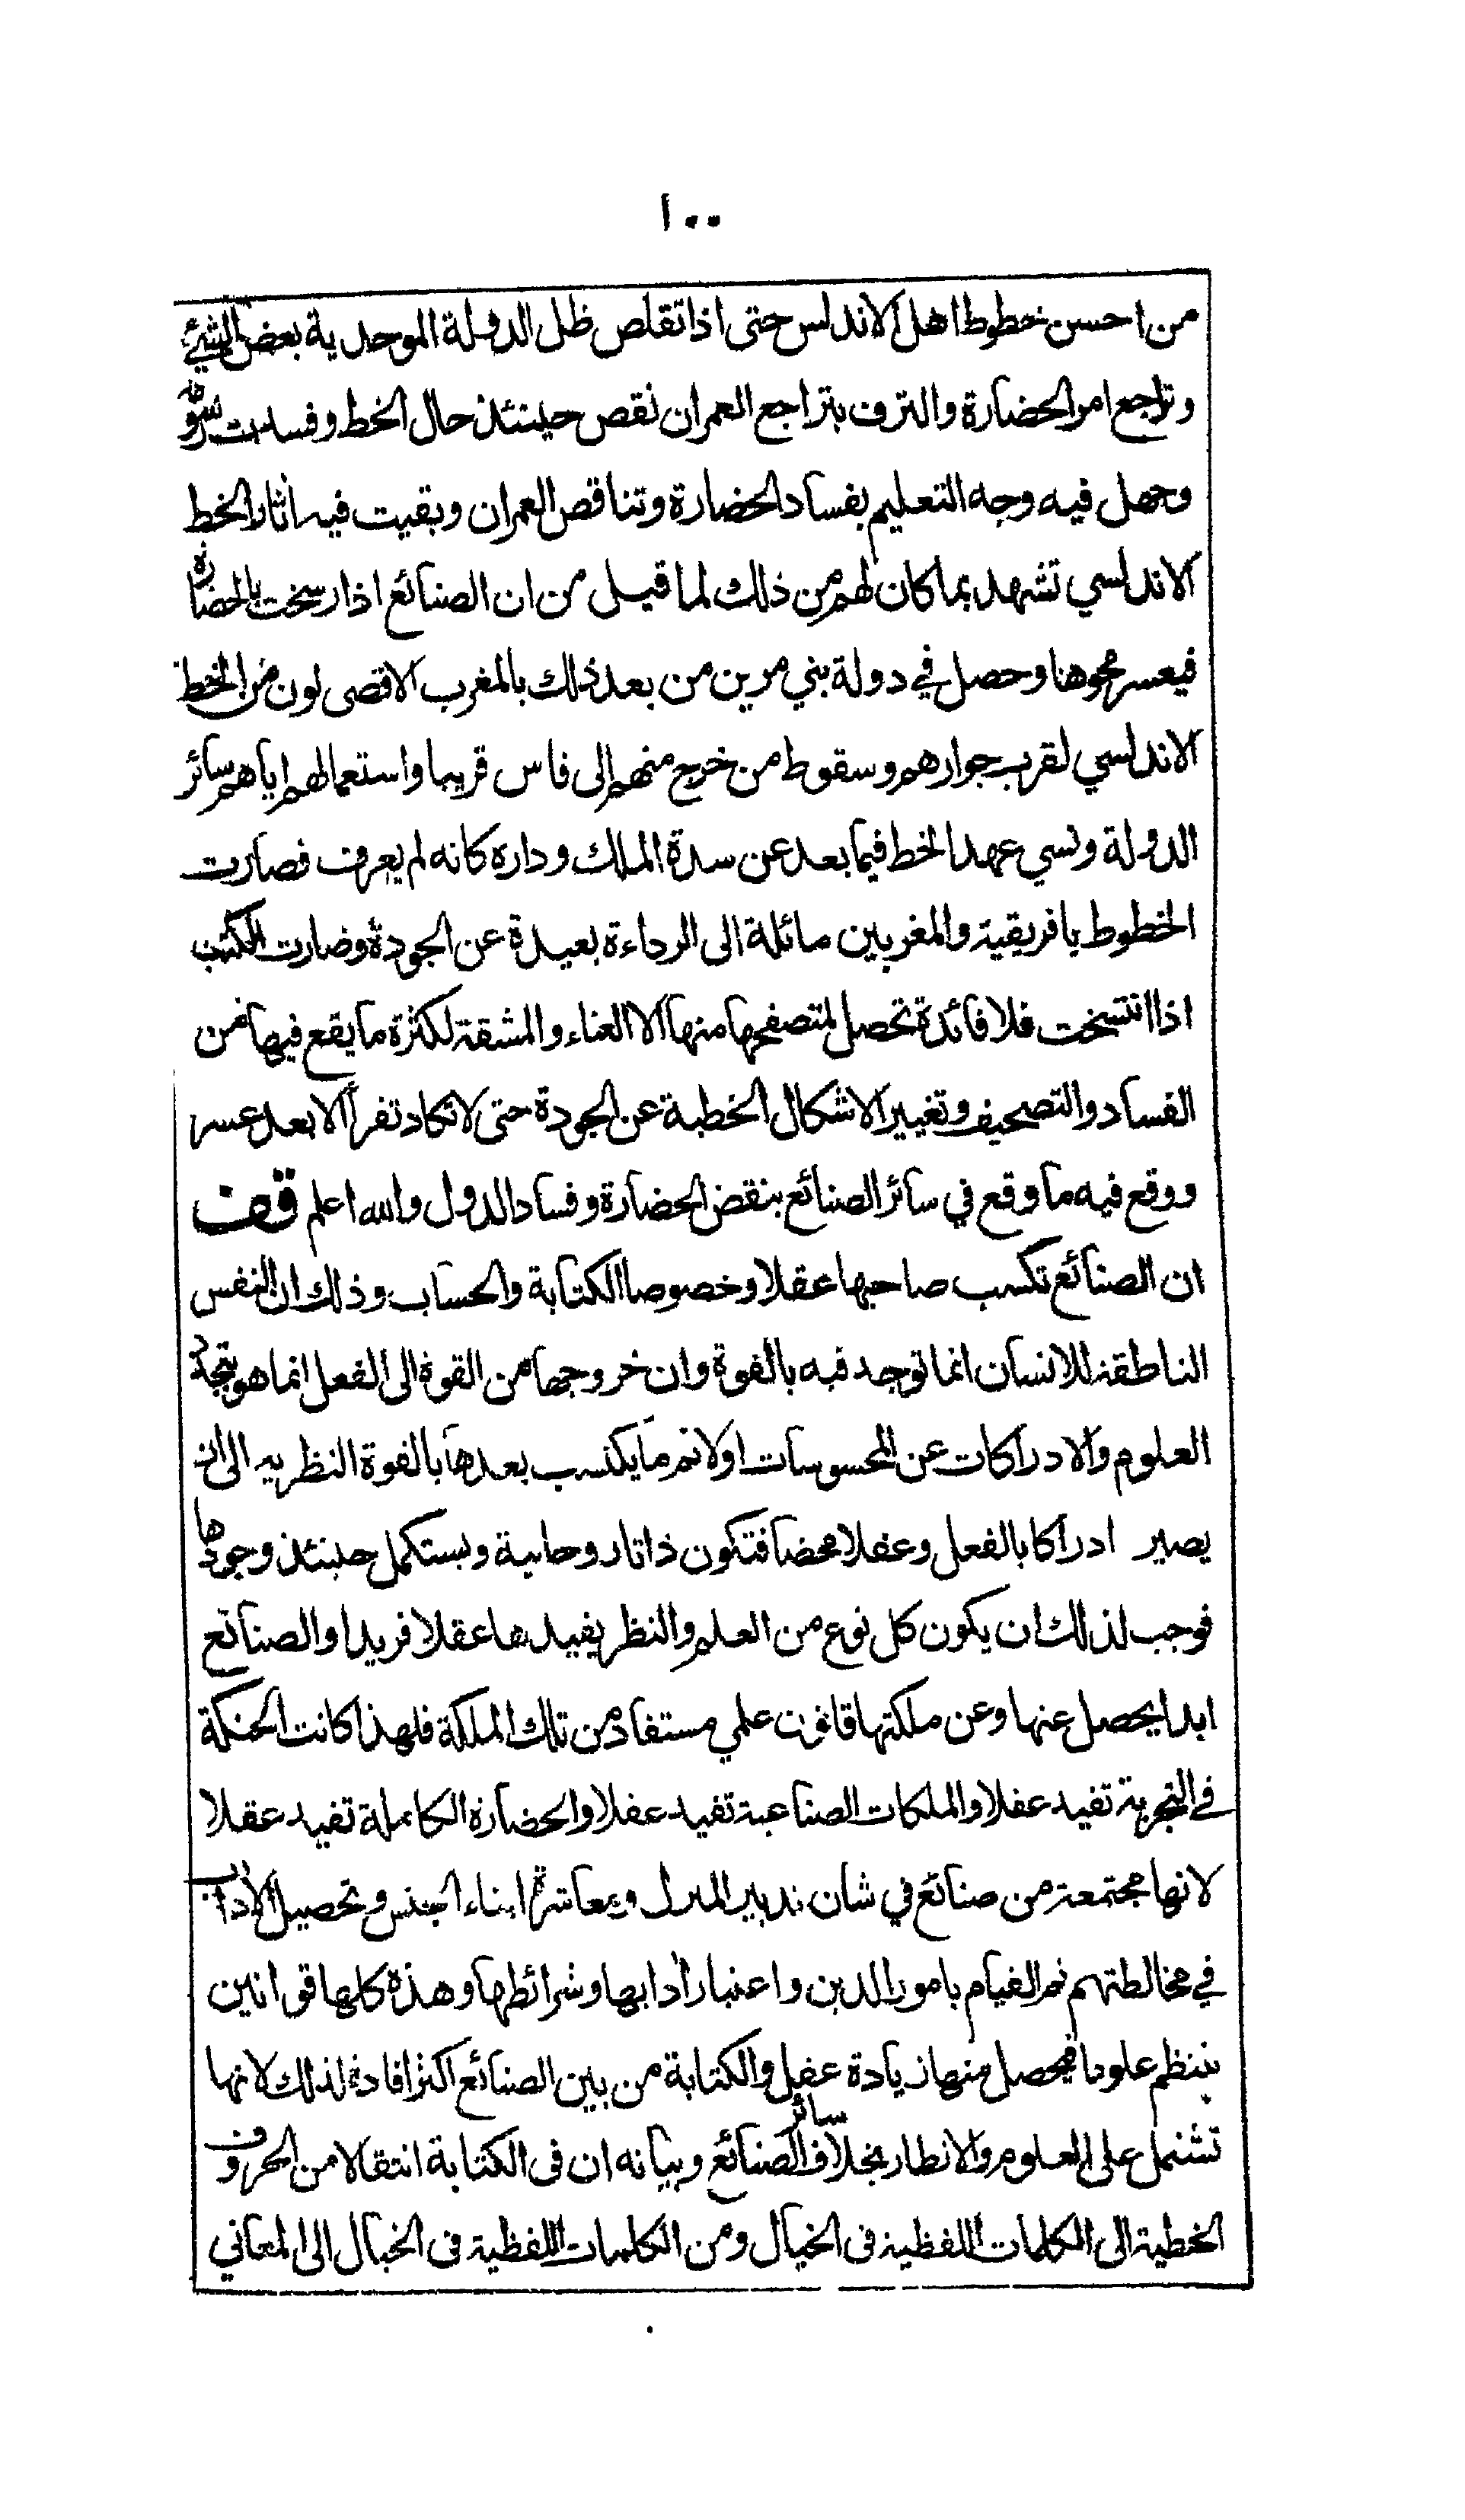 ١٠٠
من احسن خطوط اهل الاندلس حتى اذا تقلص ظل الدولة الموحدية بعض الشيئ
وتراجع امر الحضارة والترف بتراجع العمران نقص حينئذ حال الخط وفسدت رسومه
وجهل فيه وجه التعليم بفساد الحضارة وتناقص العمران وبقيت فيه اثار الخط
الاندلسي تشهد بما كان لهم من ذلك لما قيل من ان الصنائع اذا رسخت بالحضارة
فيعسر محوها وحصل في دولة بني مرين من بعد ذلك بالمغرب الاقصى لون من الخط
الاندلسي لقرب جوارهم وسقوط من خرج منهم الى فاس قريبا واستعمالهم اياهم سائر
الدولة ونسي عهد الخط فيما بعد عن سدة الملك وداره كانه لم يعرف فصارت
الخطوط بافريقية والمغربين مائلة الى الرداءة بعيدة عن الجودة وصارت الكتب
اذا انتسخت فلا فائدة تحصل لمتصفحها منها الا العناء والمشقة لكثرة ما يقع فيها من
الفساد والتصحيف وتغيير الاشكال الخطية عن الجودة حتى لا تكاد تقرأ الا بعد عسر
ووقع فيه ما وقع في سائر الصنائع بنقض الحضارة وفساد الدول والله اعلم قف
ان الصنائع تكسب صاحبها عقلا وخصوصا الكتابة والحساب وذلك ان النفس
الناطقة للانسان انما توجد فيه بالقوة وان خروجها من القوة الى الفعل انما هو بتجدد
العلوم والادراكات عن المحسوسات اولا ثم ما يكتسب بعدها بالقوة النظرية الى ان
يصير ادراكا بالفعل وعقلا محضا فتكون ذاتا روحانية ويستكمل حينئذ وجودها
فوجب لذلك ان يكون كل نوع من العلم والنظر يفيدها عقلا فريدا والصنائع
ابدا يحصل عنها وعن ملكتها قانون علمي مستفاد من تلك الملكة فلهذا كانت الحنكة
في التجربة تفيد عقلا والملكات الصناعية تفيد عقلا والحضارة الكاملة تفيد عقلا
لانها مجتمعة من صنائع في شان تدبير المنزل ومعاشرة ابناء الجنس وتحصيل الاداب
في مخالطتهم ثم القيام بامور الدين واعتبار ادابها وشرائطها وهذه كلها قوانين
تنتظم علوما فيحصل منها زيادة عقل والكتابة من بين الصنائع اكثر افادة لذلك لانها
تشتمل على العلوم والانظار بخلاف سائر الصنائع وبيانه ان في الكتابة انتقالا من الحروف
الخطية الى الكلمات اللفظية في الخيال ومن الكلمات اللفظية في الخيال الى المعاني